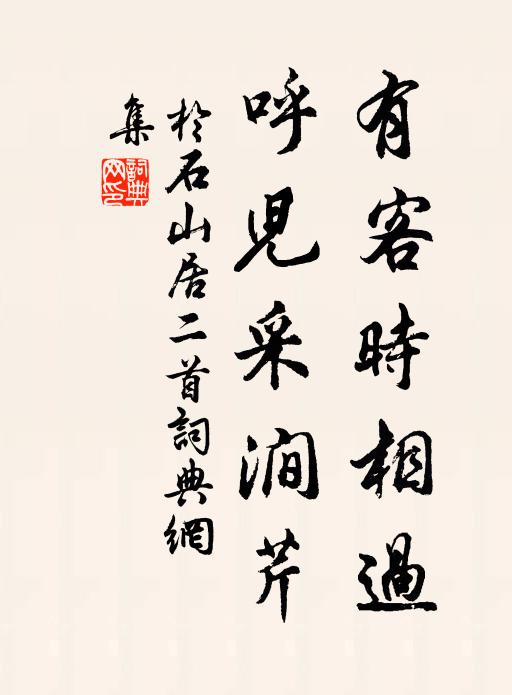 有客時相過
呼兒采澗芹
於石山居二首詞典網
集
詞典網印